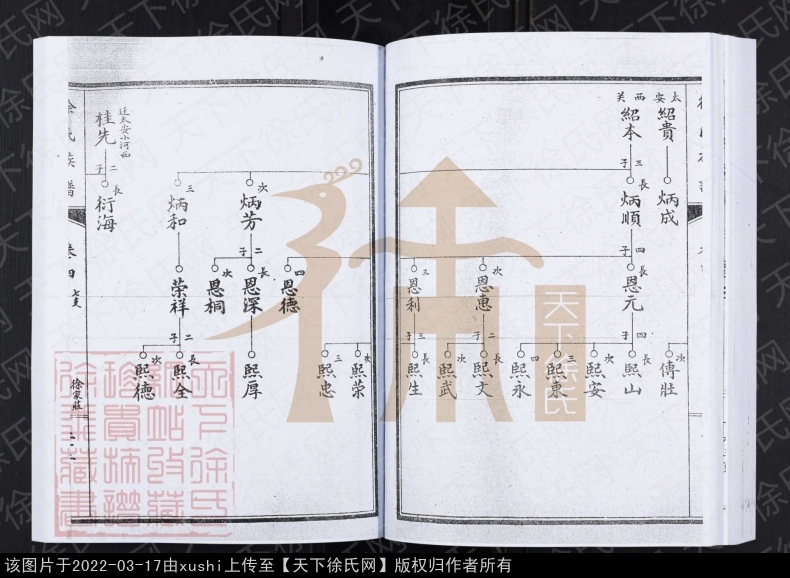 太安 紹貴
炳成
西关 紹本
三子
長 炳順
四子
長 恩元
四子
次 傳壯
長 熙山
次 熙安
三 熙東
四 熙永
次 恩惠
二子
長 熙文
次 熙武
三 恩利
三子
長 熙生
次 熙荣
三 熙忠
四 恩德
次 炳芳
二子
長 恩深
熙厚
次 恩桐
三 炳和
荣祥
二子
長 熙全
次 熙德
迁太安小河西
桂先
二子
長 衍海
徐氏族譜
卷四
徐家莊
天下徐氏
天下徐氏网
该图片于2022-03-17由xushi上传至【天下徐氏网】版权归作者所有